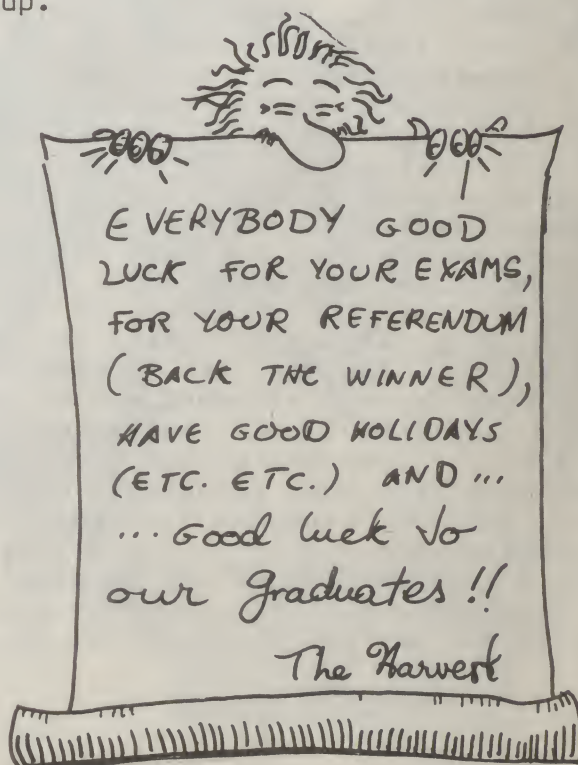 up.
EVERYBODY GOOD
LUCK FOR YOUR EXAMS,
FOR YOUR REFERENDUM
(BACK THE WINNER),
HAVE GOOD HOLIDAYS
(ETC. ETC.) AND ...
... Good luck to
our graduates!!
The Harvest